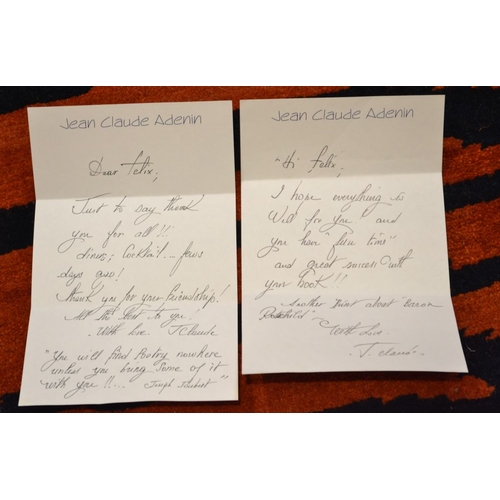 Jean Claude Adenin
Dear Felix,
Just to say thank
you for all!!
diner; Cocktail... fews
days ago!
thank you for your friendship!
All the best to you.
- With Love JClaude
"You will find Poetry nowhere
unless you bring some of it
with you!!... Joseph Joubert"
Jean Claude Adenin
"Hi Felix,
I hope everything is
Well for you and
you have time"
and great success with
your book!!!
another about "Baron
"With Love
- J. Claude -